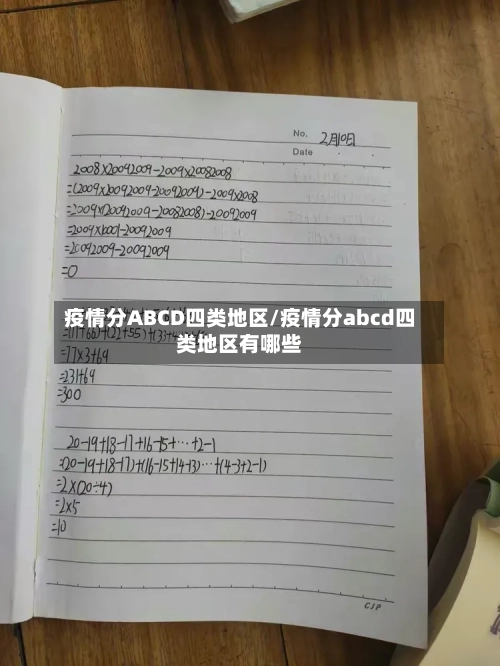 No. 2月10日
Date
2008×20092009-2009×20082008
=(2009×20092009-20092009)-2009×2008
=2009×(20092009-20082008)-20092009
=2009×10001-20092009
=20092009-20092009
=0
疫情分ABCD四类地区/疫情分abcd四
类地区有哪些
=77×3+69
=231+69
=300
20-19+18-17+16-15+…+2-1
=(20-19+18-17)+(16-15+14-13)…+(4-3+2-1)
=2×(20÷4)
=2×5
=10
CJP